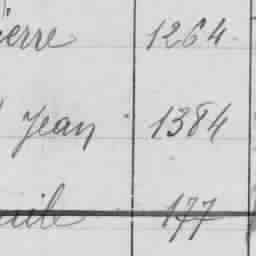 ierre 1264
Jean 1384
177